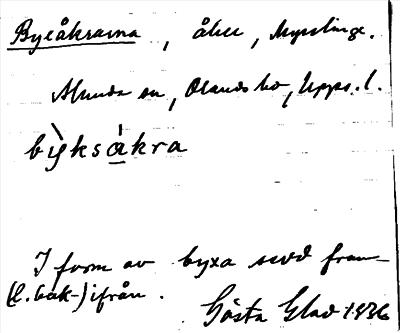 Byxåkrarna, åker, Mysslinge.
Alunda sn, Olands hd, Upps. l.
bỳksákra
I form av byxa sedd fram-
(l. bak-)ifrån.
Gösta Glad 1936